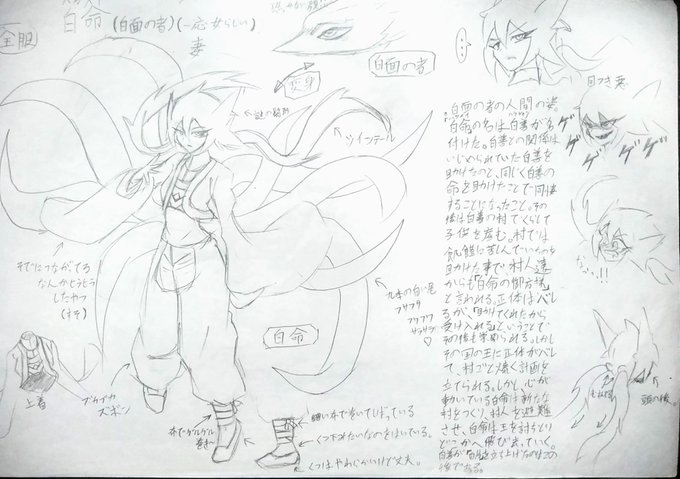 全胆
白命(白面の者)(一応女らしい)
妻
白面の者
変身
ツインテール
そでにつながてる
なんかとうとう
したやつ
上着
ブカブカ
ズボン
布でグルグル
巻き
白命
九本の白い尾
フサフサ
フワフワ
サラサラ
♡
細い布で巻いてしばっている
くつ下みたいなのをはいている。
くつはやわらかいけど丈夫。
…
目つき悪
ゲ ゲ ゲ ゲ
な…!!
頭の後。
白面の者の人間の姿。
白命の名は白善が名
付けた。白善との関係は
いじめられていた白善を
助けたのと、同じく白善の
命を助けたことで同棲
することになったこと。その
後は白善の村でくらして
子供を産む。村では
飢饉に苦しんでいたのを
助けた事で、村人達
からも「白命の御方様」
と言われる。正体はバレ
るが、「助けてくれたから
受け入れる」ということで
その後も崇められる。しかし
その国の王に正体がバレ
て、村ごと焼く計画を
立てられる。しかし、心が
動いている白命は新たな
村をつくり、村人を避難
させ、白命は王を討ちとり
どこかへ飛び去っていく。
後である。